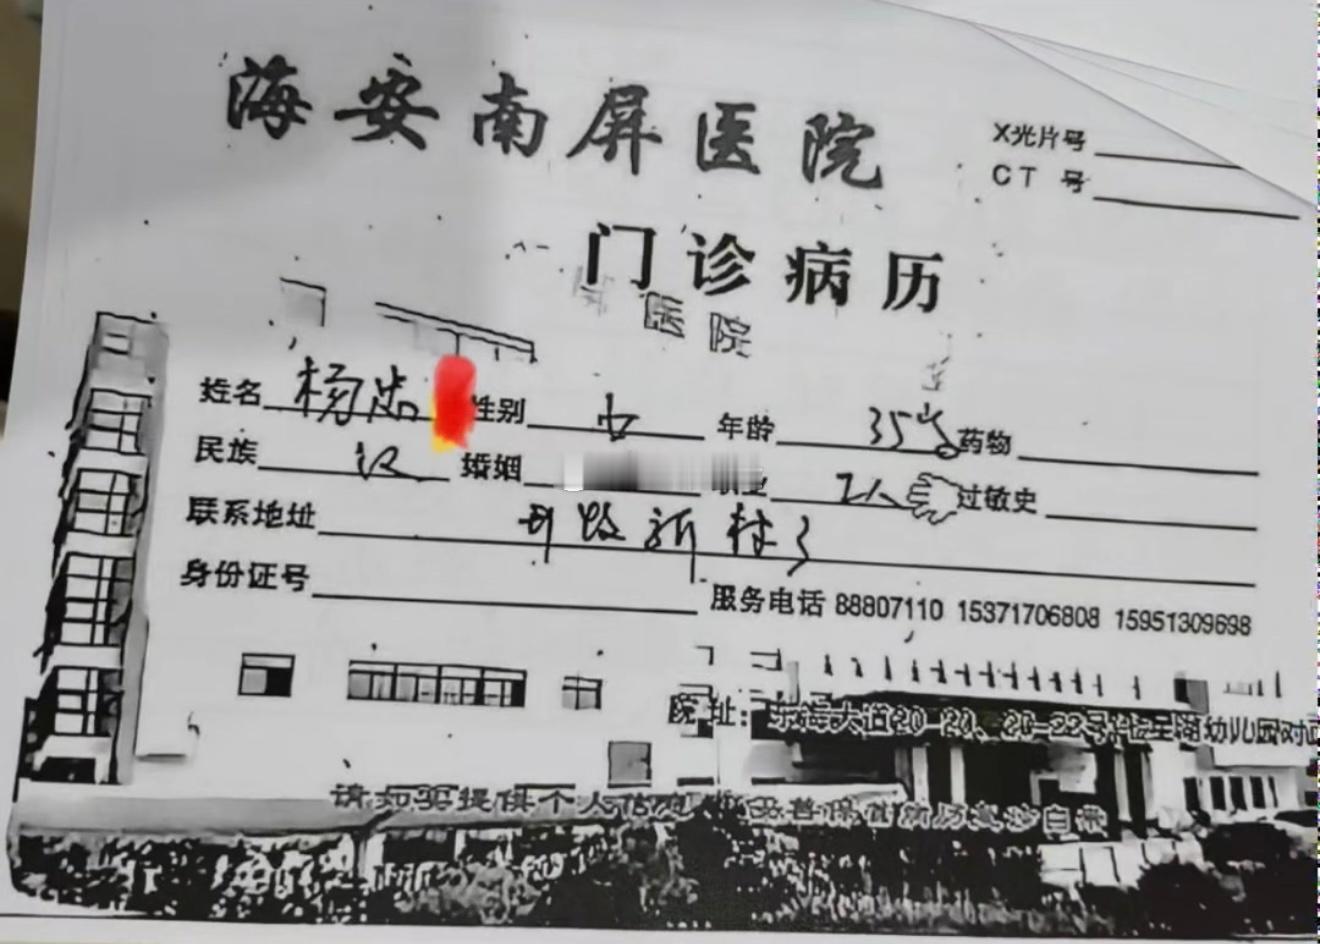 海安南屏医院
X光片号
CT 号
门诊病历
医院
姓名 杨忠 性别 女 年龄 35岁 药物
民族 汉 婚姻 工人 过敏史
联系地址 开发新村
身份证号 服务电话 88807110 15371706808 15951309698
院址：东海大道20-20、20-22号 湖幼儿园对面
请如实提供个人信息 妥善保管病历